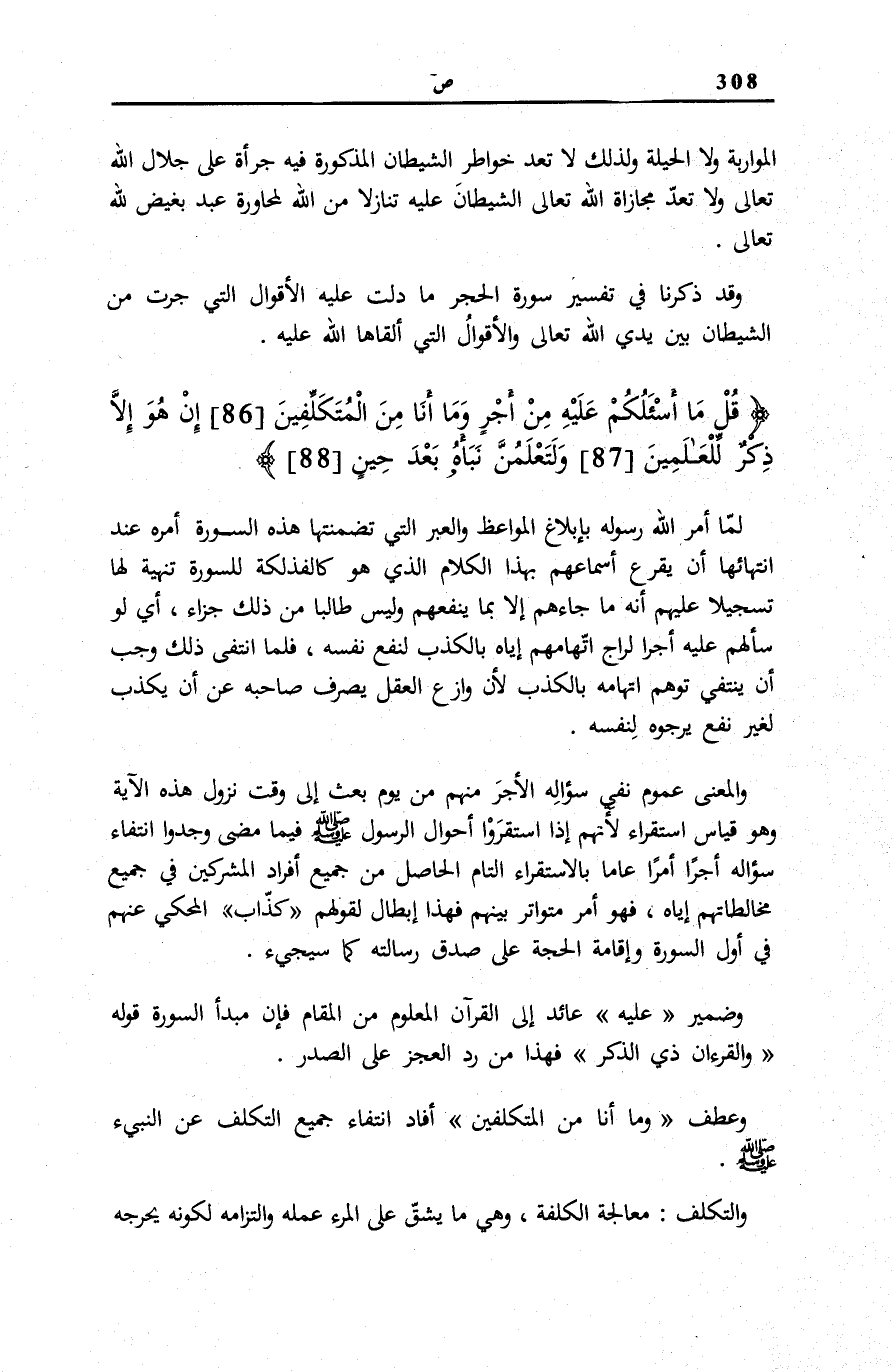 308
صۤ
المواربة ولا الحيلة ولذلك لا تعد خواطر الشيطان المذكورة فيه جرأة على جلال الله
تعالى ولا تعدّ مجازاة الله تعالى الشيطانَ عليه تنازلا من الله لمحاورة عبد بغيض لله
تعالى .
وقد ذكرنا في تفسير سورة الحجر ما دلت عليه الأقوال التي جرت من
الشيطان بين يدي الله تعالى والأقوالُ التي ألقاها الله عليه .
﴿ قُلْ مَا أَسْئَلُكُمْ عَلَيْهِ مِنْ أَجْرٍ وَمَا أَنَا مِنَ الْمُتَكَلِّفِينَ [86] إِنْ هُوَ إِلاَّ
ذِكْرٌ لِّلْعَـٰلَمِينَ [87] وَلَتَعْلَمُنَّ نَبَأَهُۥ بَعْدَ حِينٍ [88] ﴾
لمّا أمر الله رسوله بإبلاغ المواعظ والعبر التي تضمنتها هذه الســورة أمره عند
انتهائها أن يقرع أسماعهم بهذا الكلام الذي هو كالفذلكة للسورة تنهية لها
تسجيلا عليهم أنه ما جاءهم إلا بما ينفعهم وليس طالبا من ذلك جزاء ، أي لو
سألهم عليه أجرا لراج اتّهامهم إياه بالكذب لنفع نفسه ، فلما انتفى ذلك وجب
أن ينتفي توهم اتهامه بالكذب لأن وازع العقل يصرف صاحبه عن أن يكذب
لغير نفع يرجوه لِنفسه .
والمعنى عموم نفي سؤالِه الأجرَ منهم من يوم بعث إلى وقت نزول هذه الآية
وهو قياس استقراء لأنهم إذا استقرَوْا أحوال الرسول ﷺ فيما مضى وجدوا انتفاء
سؤاله أجرًا أمرًا عاما بالاستقراء التام الحاصل من جميع أفراد المشركين في جميع
مخالطاتهم إياه ، فهو أمر متواتر بينهم فهذا إبطال لقولهم «كذّاب» المحكي عنهم
في أول السورة وإقامة الحجة على صدق رسالته كما سيجيء .
وضمير « عليه » عائد إلى القرآن المعلوم من المقام فإن مبدأ السورة قوله
« والقرءان ذي الذكر » فهذا من رد العجز على الصدر .
وعطف « وما أنا من المتكلفين » أفاد انتفاء جميع التكلف عن النبيء
ﷺ .
والتكلف : معالجة الكلفة ، وهي ما يشقّ على المرء عمله والتزامه لكونه يحرجه